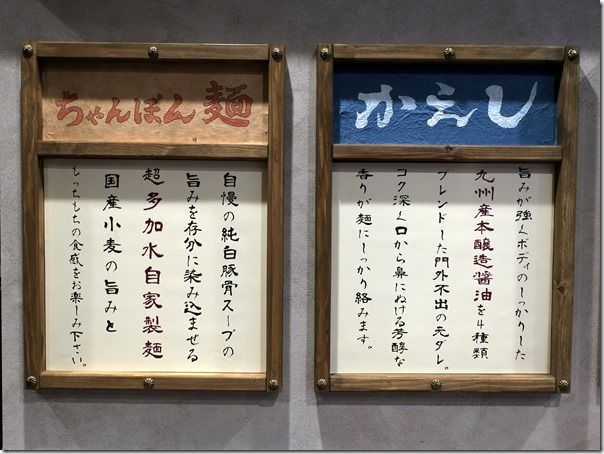 ちゃんぽん麺
自慢の純白豚骨スープの
旨みを存分に染み込ませる
超多加水自家製麺
国産小麦の旨みと
もっちもちの食感をお楽しみ下さい。
かえし
旨みが強くボディのしっかりした
九州産本醸造醤油を4種類
ブレンドした門外不出の元ダレ。
コク深く口から鼻にぬける芳醇な
香りが麺にしっかり絡みます。